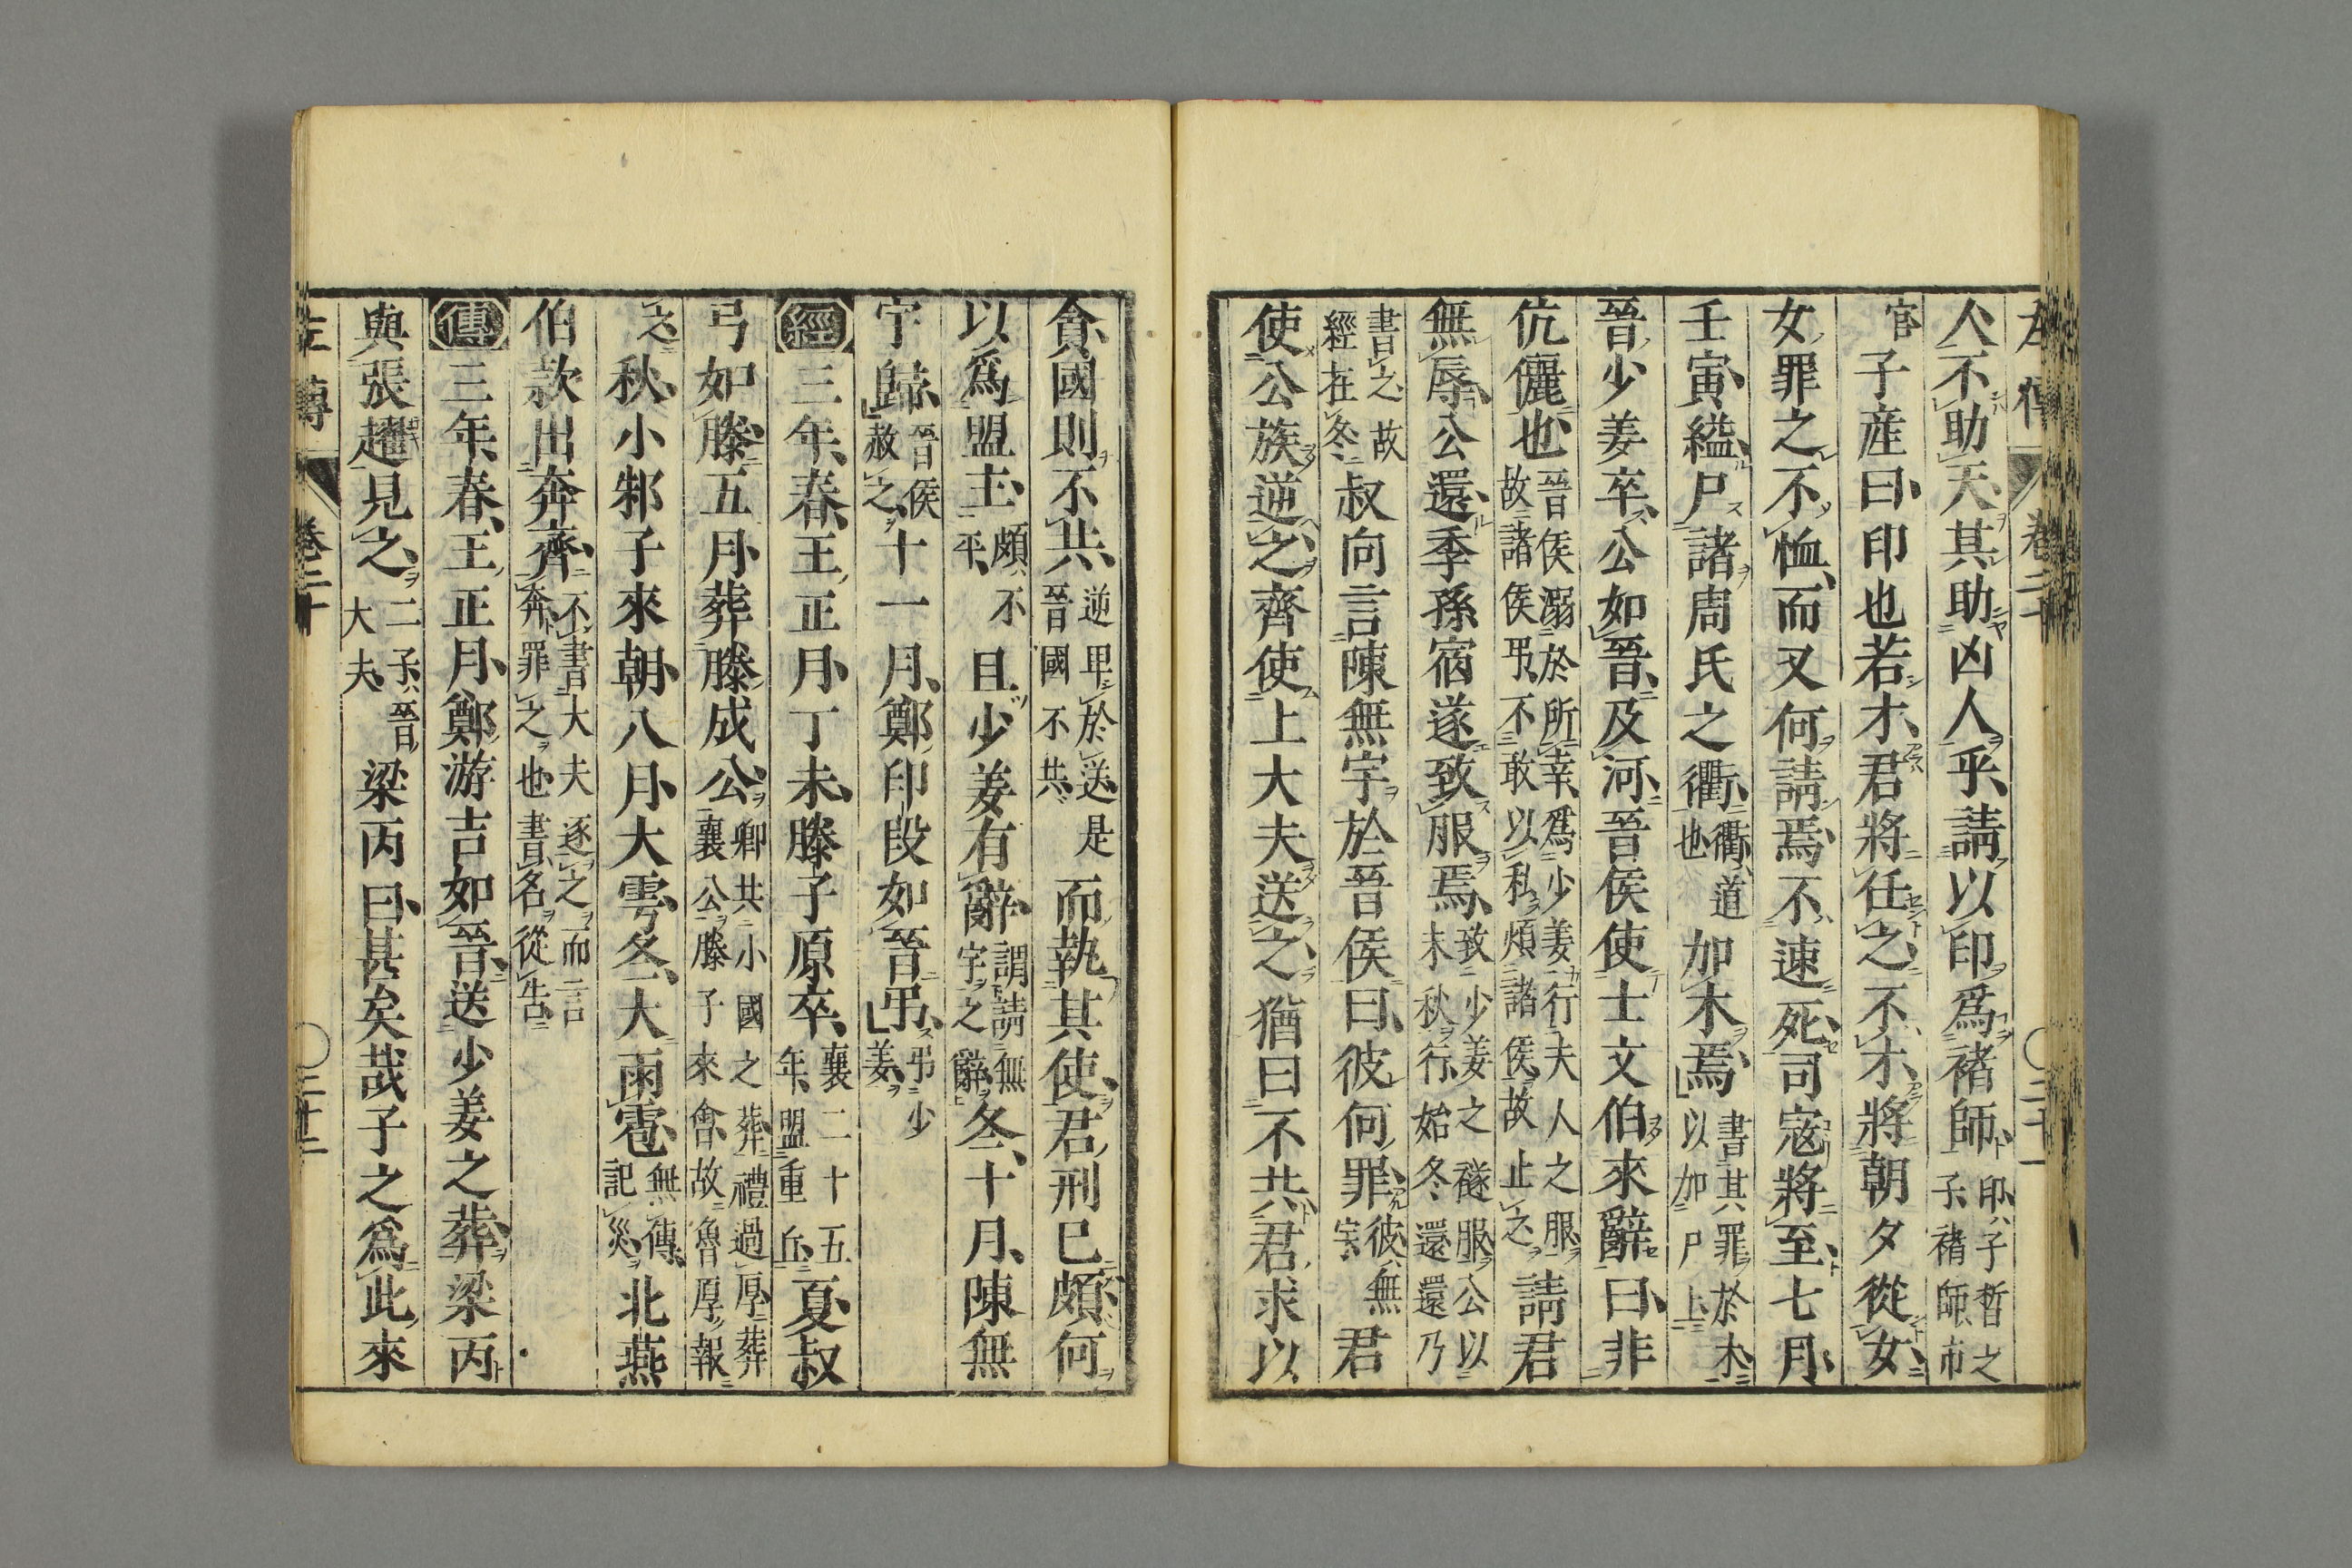 左傳 卷二十 〇二十一
人不助天其助凶人乎請以印爲褚師印子晳之子褚師市
官子產曰印也若才君將任之不才將朝夕從女
女罪之不恤而又何請焉不速死司寇將至七月
壬寅縊尸諸周氏之衢衢道也加木焉書其罪於木以加尸上
晉少姜卒公如晉及河晉侯使士文伯來辭曰非
伉儷也晉侯溺於所幸爲少姜行夫人之服故諸侯弔不敢以私煩諸侯故止之請君
無辱公還季孫宿遂致服焉致少姜之襚服公以末秋行始冬還還乃
書之故經在冬叔向言陳無宇於晉侯曰彼何罪彼無宇君
使公族逆之齊使上大夫送之猶曰不共君求以
貪國則不共逆卑於送是晉國不共而執其使君刑已頗何
以爲盟主頗不平且少姜有辭謂請無宇之辭冬十月陳無
宇歸晉侯赦之十一月鄭印段如晉弔弔少姜
經三年春王正月丁未滕子原卒襄二十五年盟重丘夏叔
弓如滕五月葬滕成公卿共小國之葬禮過厚葬襄公滕子來會故魯厚報
之秋小邾子來朝八月大雩冬大雨雹無傳記災北燕
伯款出奔齊不書大夫逐之而言奔罪之也書名從告
傳三年春王正月鄭游吉如晉送少姜之葬梁丙
與張趯見之二子晉大夫梁丙曰甚矣哉子之爲此來
左傳 卷二十 〇二十二